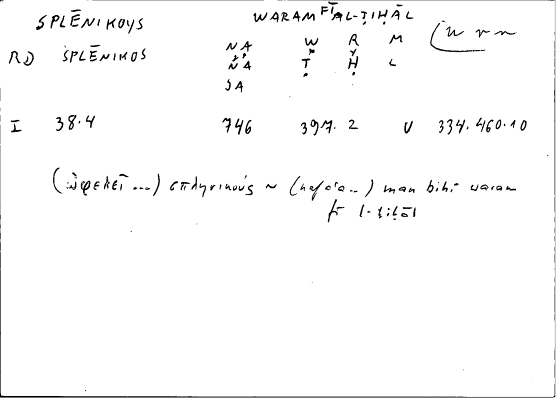 SPLĒNIKOYS WARAM FĪ AL-ṬIḤĀL
NA W R M
RD SPLĒNIKOS NA Ṭ Ḥ L
JA
I 38.4 746 397. 2 U 334.460.10
(ὠφελεῖ ...) σπληνικούς ~ (nafaʿa..) man bihī waram
fī l-ṭiḥāl